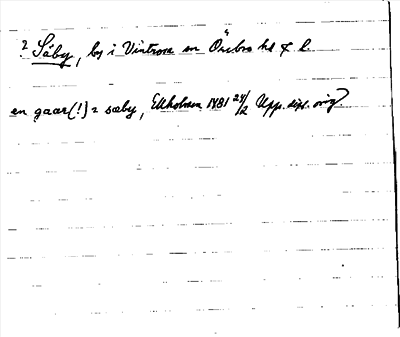 ? Såby, by i Vintrosa sn Örebro hd & l.
en gaar(!) i sœby, Ekholmen 1481 24/2 Upp. dipl. orig.